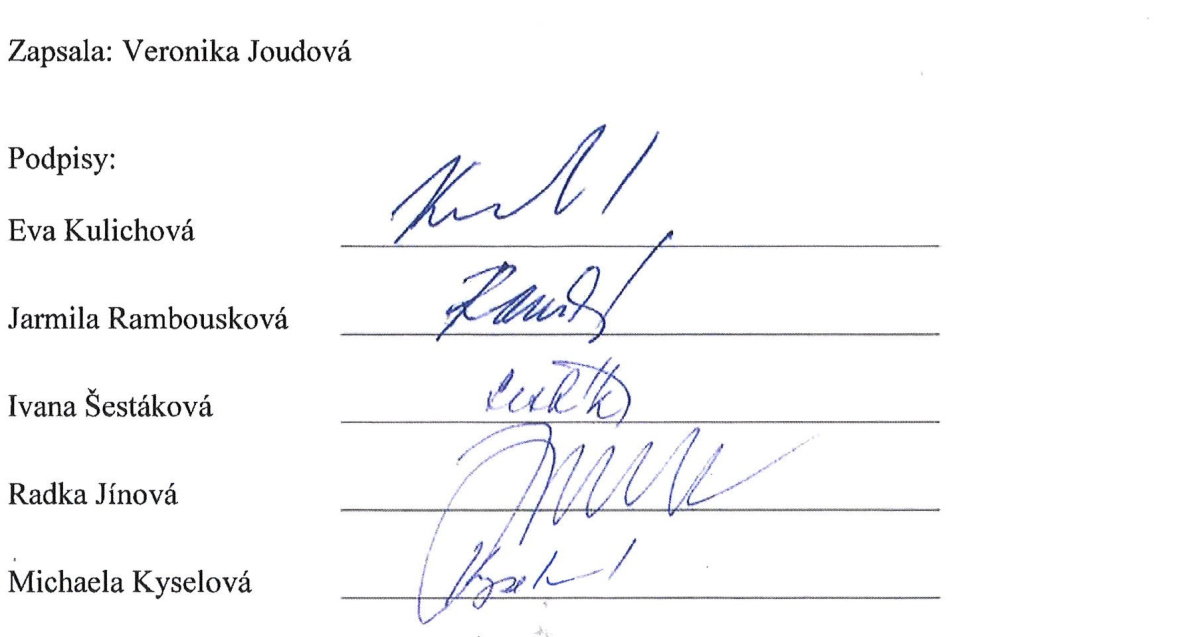 Zapsala: Veronika Joudová
Podpisy:
Eva Kulichová
Jarmila Rambousková
Ivana Šestáková
Radka Jínová
Michaela Kyselová